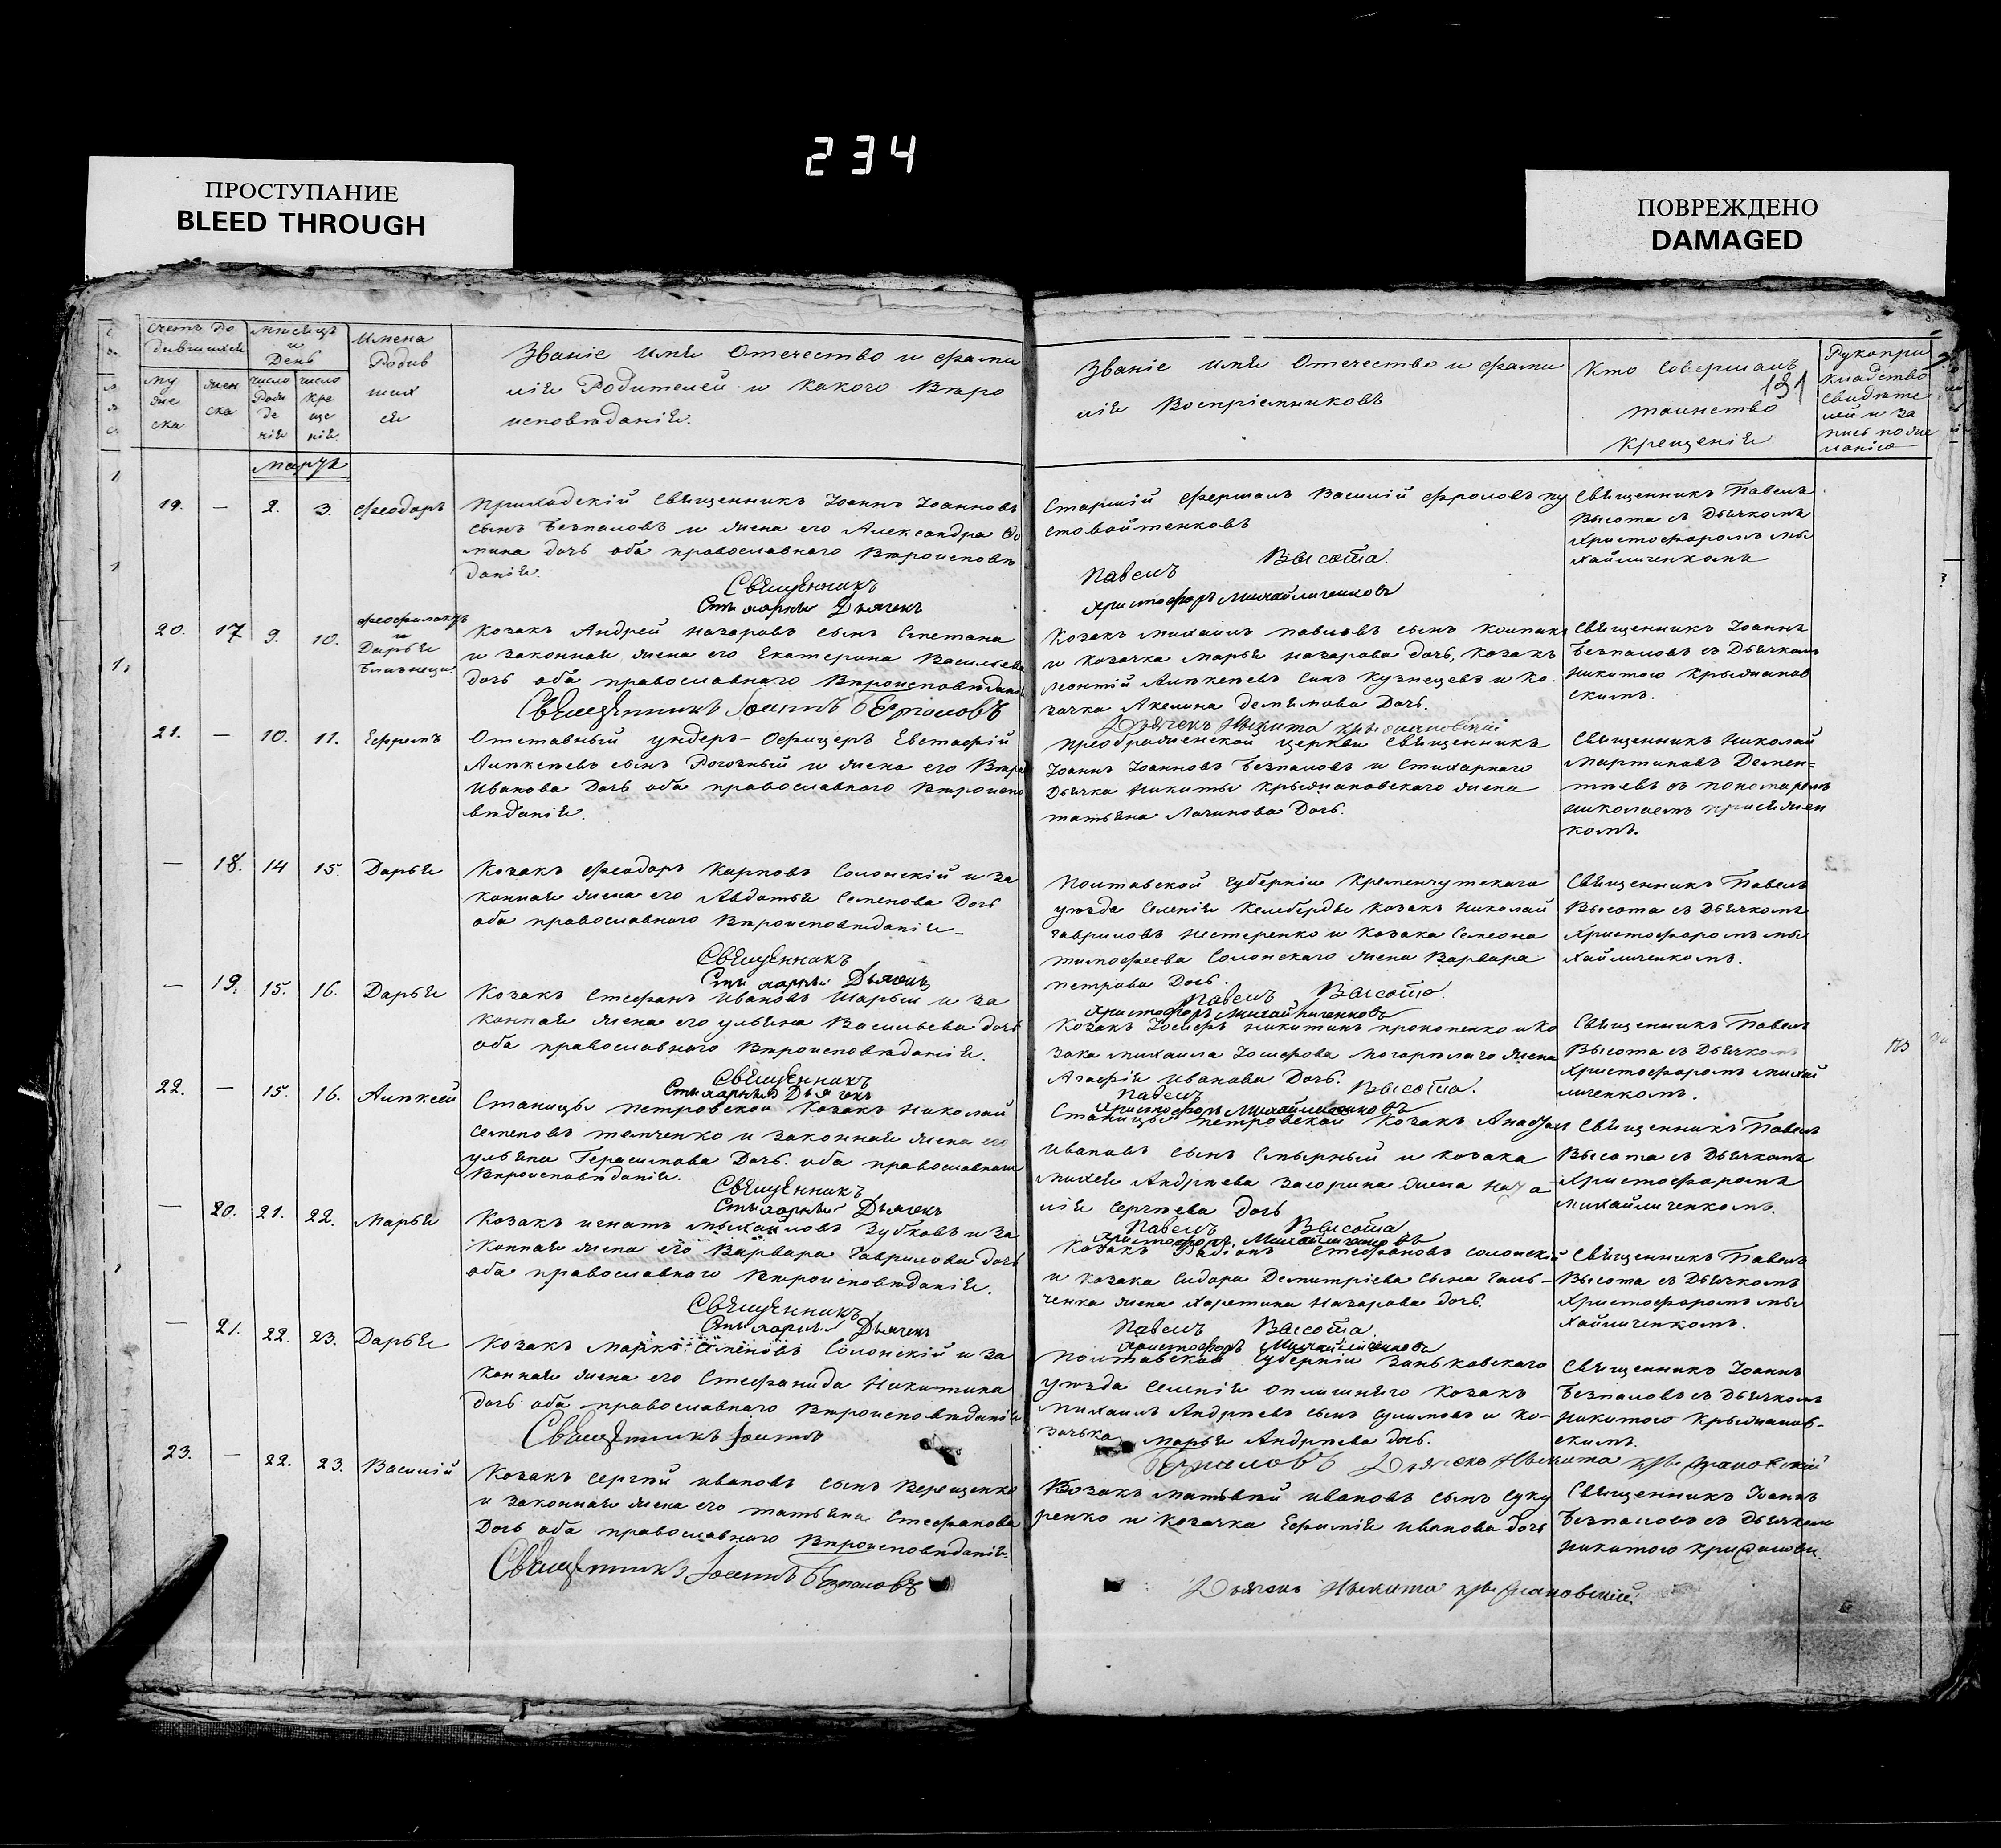 234
ПРОСТУПАНИЕ
BLEED THROUGH
ПОВРЕЖДЕНО
DAMAGED
Счетъ Ро
дившихся
Му
жеска
жен
ска
Мѣсяцъ
и
День
число
Рож
де
нія
число
кре
ще
нія
Имена
Родив
ших
ся
Званіе имя Отечество и фами
лія Родителей и какого Вѣро
исповѣданія.
Званіе имя Отечество и фами
лія Воспріемниковъ
Кто Совершалъ
таинство
крещенія
181
Рукопри
кладство
свидѣте
лей и за
пись по же
ланію
Марта
19. — 2. 3. Феодоръ
Приходскій Священникъ Іоаннъ Іоанновъ
сынъ Безпаловъ и жена его Александра
мина дочь оба православнаго Вѣроисповѣ
данія.
Священникъ
Стихарный Дьячекъ
Старшій Фершалъ Василій Фроловъ пу
стовойтенковъ
Павелъ Высота.
Христофоръ Михайличенковъ
Священникъ Павелъ
Высота съ Дьячкомъ
Христофоромъ мы
хайличенкомъ
20. 17 9. 10. Феофилактъ
и
Дарья
близнецы.
Козакъ Андрей Назаровъ сынъ Сметана
и законная жена его Екатерина Васильева
дочь оба православнаго Вѣроисповѣданія
Священникъ Іоаннъ Безпаловъ
Козакъ Михаилъ Павловъ сынъ
и козачка Марья Назарова дочь, козакъ
Леонтій Алѣксѣевъ сынъ Кузнецевъ и ко-
зачка Акелина Демьянова Дочь.
Дьячекъ Никита Крыжановскій
Священникъ Іоаннъ
Безпаловъ съ Дьячкомъ
Никитою Крыжанов
скимъ.
21. — 10. 11. Ефремъ
Отставный ундеръ-Офицеръ Евстафій
Алѣксѣевъ сынъ Рогочный и жена его Вѣра
Иванова Дочь оба православнаго Вѣроиспо
вѣданія.
Преображенской церкви Священникъ
Іоаннъ Іоанновъ Безпаловъ и Стихарнаго
Дьячка Никиты Крыжановскаго жена
татьяна Логинова Дочь.
Священникъ Николай
Мартиновъ Демен-
тьевъ съ пономаремъ
николаемъ
комъ.
— 18. 14 15. Дарья
Козакъ Феодоръ Карповъ Солонскій и за
конная жена его Авдотья Семенова Дочь
оба православнаго Вѣроисповѣданія.
Священникъ
Стихарный Дьячекъ
Полтавской губерніи Кременчугскаго
уѣзда Селенія Келеберды козакъ Николай
Гавриловъ Нестеренко и козака Семеона
тимофеева Солонскаго жена Варвара
петрова Дочь.
Павелъ Высота.
Христофоръ Михайличенковъ
Священникъ Павелъ
Высота съ Дьячкомъ
Христофоромъ мы
хайличенкомъ.
— 19. 15. 16. Дарья
Козакъ Стефанъ Ивановъ Шарый и за
конная жена его ульяна Васильева дочь
оба православнаго Вѣроисповѣданія.
Священникъ
Стихарный Дьячекъ
Козакъ Іосифъ никитинъ прокопенко и ко
зака Михаила Іосифова жена
Агафія Иванова Дочь.
Павелъ Высота.
Христофоръ Михайличенковъ
Священникъ Павелъ
Высота съ Дьячкомъ
Христофоромъ михай
личенкомъ.
22. — 15. 16. Алѣксей
Станицы петровской козакъ Николай
Семеновъ темченко и законная жена его
ульяна Герасимова Дочь. оба православнаго
Вѣроисповѣданія.
Священникъ
Стихарный Дьячекъ
Станицы петровской козакъ
Ивановъ сынъ Смирный и козака
михея Андрѣева Загорина жена
лія Сергѣева дочь
Павелъ Высота
Христофоръ Михайличенковъ
Священникъ Павелъ
Высота съ Дьячкомъ
Христофоромъ
Михайличенкомъ.
— 20. 21. 22. Марья
Козакъ игнатъ михайловъ Зубковъ и за
конная жена его Варвара Гаврилова дочь
оба православнаго Вѣроисповѣданія.
Священникъ
Стихарный Дьячекъ
Козакъ Стефановъ солонскій
и козака Сидора Демитріева сына
ченка жена Харетина Назарова дочь.
Павелъ Высота
Христофоръ Михайличенковъ
Священникъ Павелъ
Высота съ Дьячкомъ
Христофоромъ мы
хайличенкомъ.
— 21. 22. 23. Дарья
Козакъ Марко Семеновъ Солонскій и за
конная жена его Стефанида Никитина
дочь оба православнаго Вѣроисповѣданія
Священникъ Іоаннъ
Полтавской Губерніи Заньковскаго
уѣзда Селенія опашняго козакъ
Михаилъ Андрѣевъ сынъ Сулимовъ и ко-
зачька Марья Андрѣева дочь.
Безпаловъ Дьячекъ Никита Крыжановскій
Священникъ Іоаннъ
Безпаловъ съ Дьячкомъ
Никитою Крыжанов-
скимъ.
23. — 22. 23. Василій
Козакъ Сергѣй Ивановъ сынъ Верещенко
и законная жена его татьяна Стефанова
Дочь оба православнаго Вѣроисповѣданія.
Священникъ Іоаннъ Безпаловъ
Козакъ матвѣй Ивановъ сынъ Суку
ренко и козачка Ефимія Иванова дочь
Дьячекъ Никита Крыжановскій.
Священникъ Іоаннъ
Безпаловъ съ Дьячкомъ